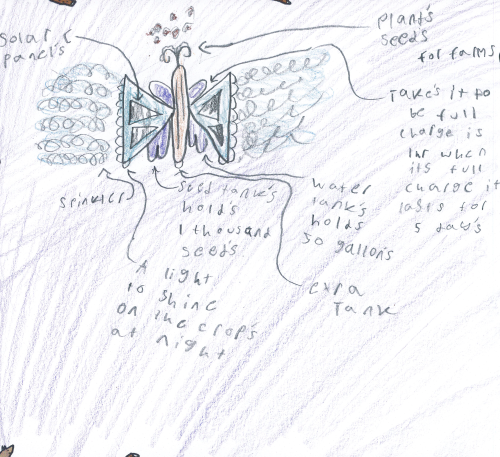 Solar
panel's
Plant's
seeds
for farms
Take's it to
be full
charge is
1hr when
its full
charge it
lasts for
5 daw's
srinkler
seed tank's
hold's
1 thousand
seeds
water
tank's
holds
50 gallon's
A light
to shine
on the crop's
at night
exra
Tank